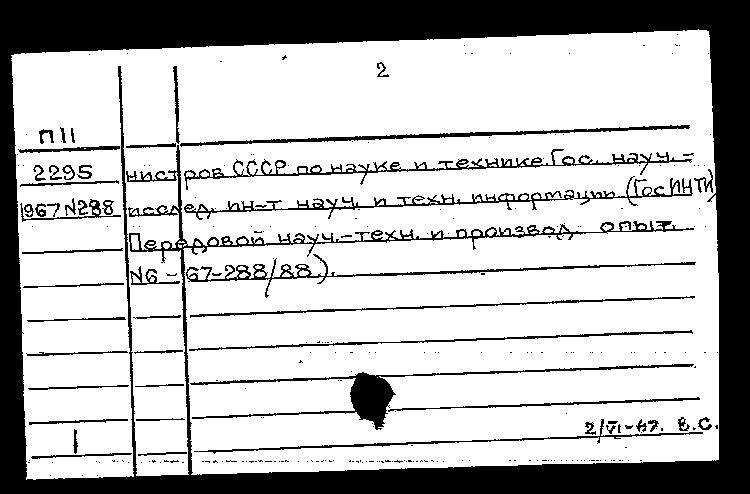 2
П11
2295 нистров СССР по науке и технике. Гос. науч.-
1967 N288 исслед. ин-т науч. и техн. информации (ГосИНТИ)
Передовой науч.-техн. и производ. опыт.
N6-67-288/88).
1
2/VI-67. В.С.